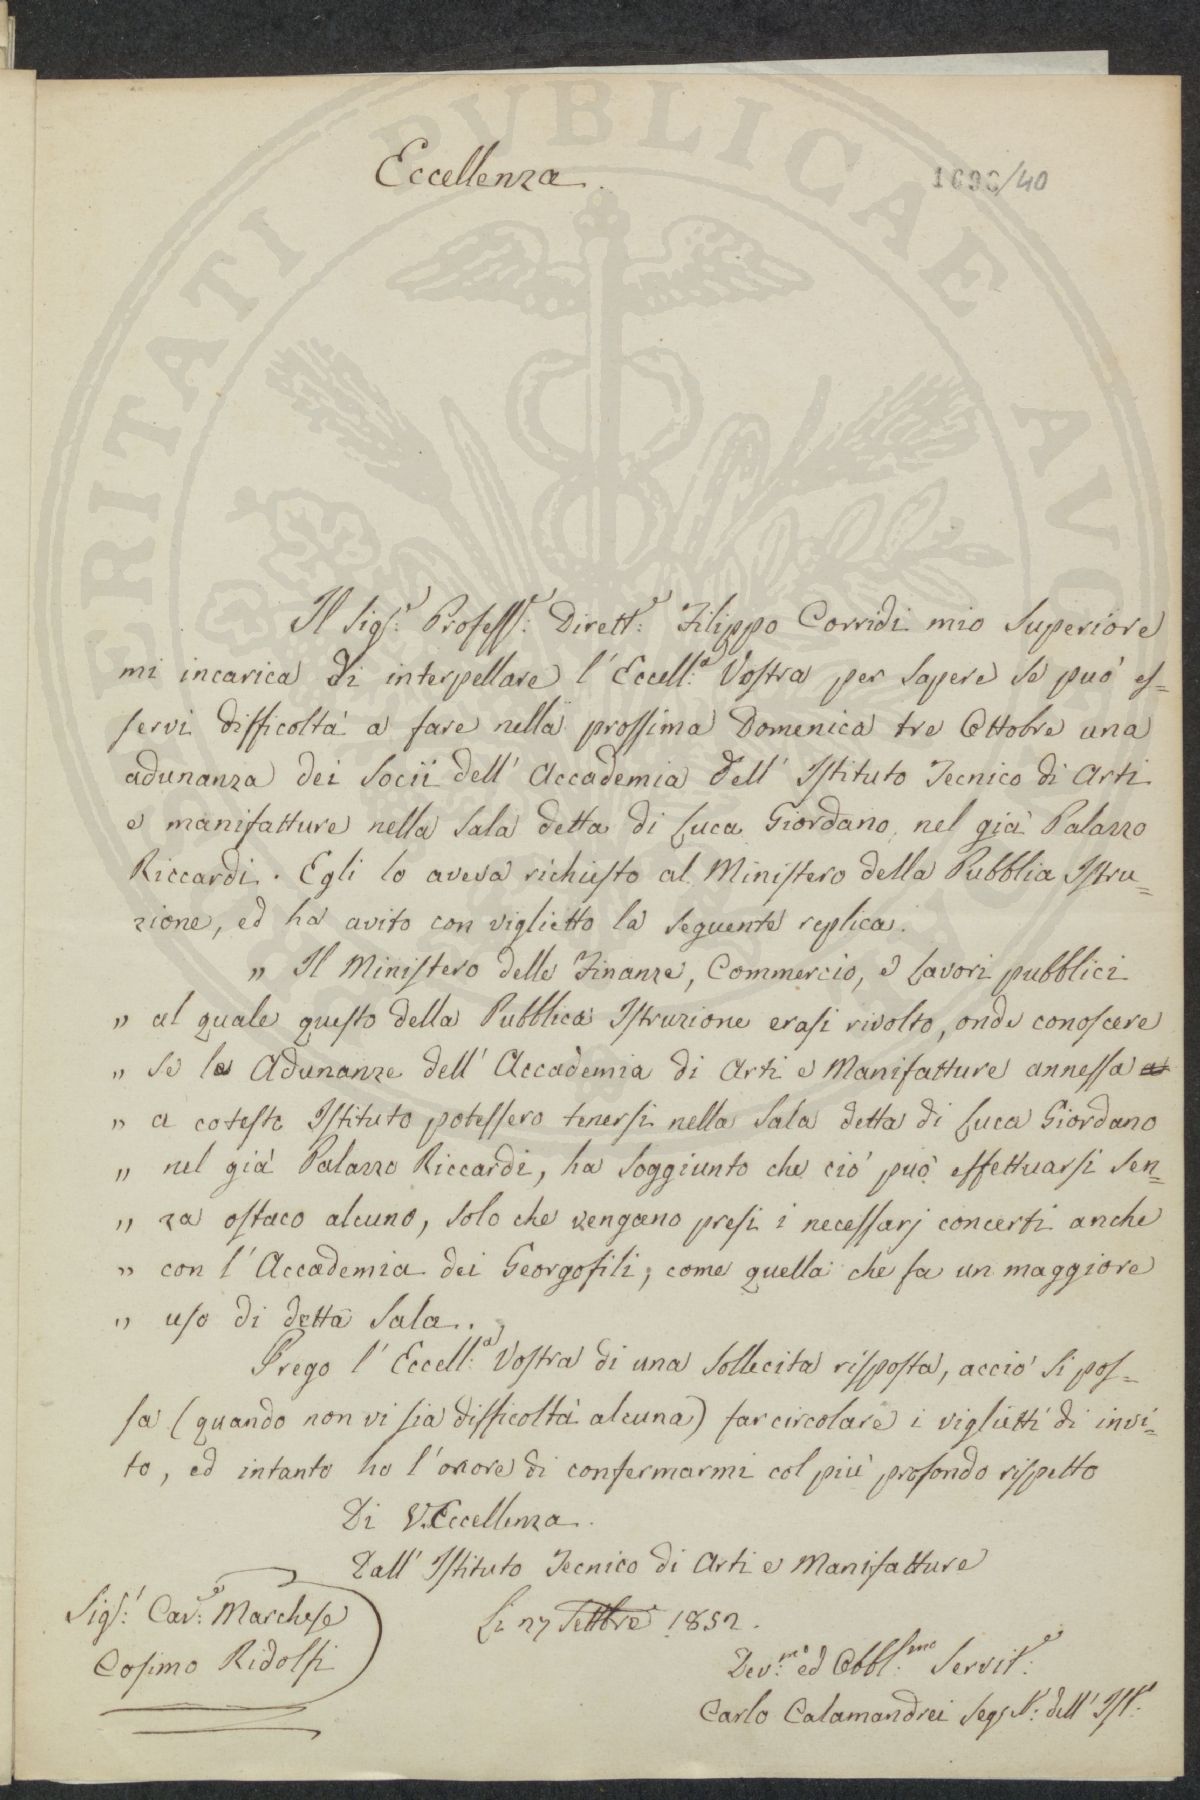 Eccellenza.
1696/40
Il Sigr. Professr. Direttr. Filippo Corridi mio Superiore
mi incarica di interpellare l' Eccell.a Vostra per sapere se può es=
servi difficoltà a fare nella prossima Domenica tre Ottobre una
adunanza dei Socii dell' Accademia dell' Istituto Tecnico di Arti
e manifatture nella Sala detta di Luca Giordano nel già Palazzo
Riccardi. Egli lo aveva richiesto al Ministero della Pubblia Istru=
zione, ed ha avito con viglietto la seguente replica.
" Il Ministero delle Finanze, Commercio, e Lavori pubblici
" al quale questo della Pubblica Istruzione erasi rivolto, onde conoscere
" se le Adunanze dell' Accademia di Arti e Manifatture annessa
" a cotesto Istituto potessero tenersi nella Sala detta di Luca Giordano
" nel già Palazzo Riccardi, ha soggiunto che ciò può effettuarsi sen=
" za ostaco alcuno, solo che vengano presi i necessarj concerti anche
" con l' Accademia dei Georgofili, come quella che fa un maggiore
" uso di detta Sala.
Prego l' Eccell.a Vostra di una sollecita risposta, acciò si pos=
sa (quando non vi sia difficoltà alcuna) far circolare i viglietti di invi=
to, ed intanto ho l'onore di confermarmi col più profondo rispetto
Di V. Eccellenza.
Dall' Istituto Tecnico di Arti e Manifatture
Li 27 Settbre 1852.
Sigr. Cav.e Marchese
Cosimo Ridolfi
Dev.mo ed Obbl.mo Servit.e
Carlo Calamandrei Seg.o dell' Ist.o
VERITATI PUBLICAE AVC